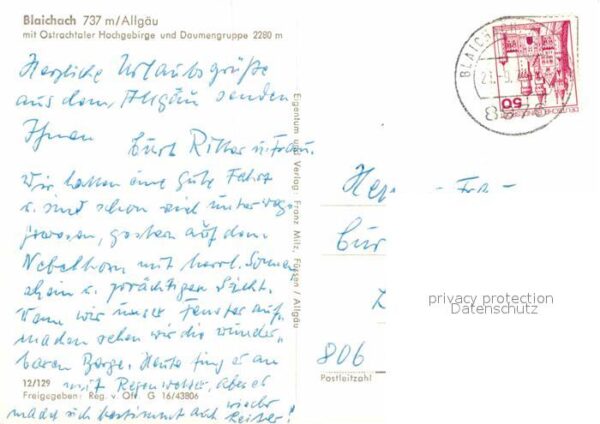 Blaichach 737 m/Allgäu
mit Ostrachtaler Hochgebirge und Daumengruppe 2280 m
Herzliche Urlaubsgrüße
aus dem Allgäu senden
Ihnen
Curt Ritter u. Frau.
Wir hatten eine gute Fahrt
u. sind schon viel unterwegs
gewesen, gestern auf dem
Nebelhorn mit herrl. Sonnen
schein u. prächtiger Sicht.
Wenn wir unser Fenster auf
machen sehen wir die wunder
baren Berge. Heute fing es an
mit Regenwetter, aber es
wieder
macht sich bestimmt auch heiter!
12/129
Freigegeben: Reg. v. Obb. G 16/43806
Eigentum und Verlag: Franz Milz, Füssen / Allgäu
BLAICHACH
50
DEUTSCHE BUNDESPOST
Frau
Cur
806
Postleitzahl
privacy protection
Datenschutz